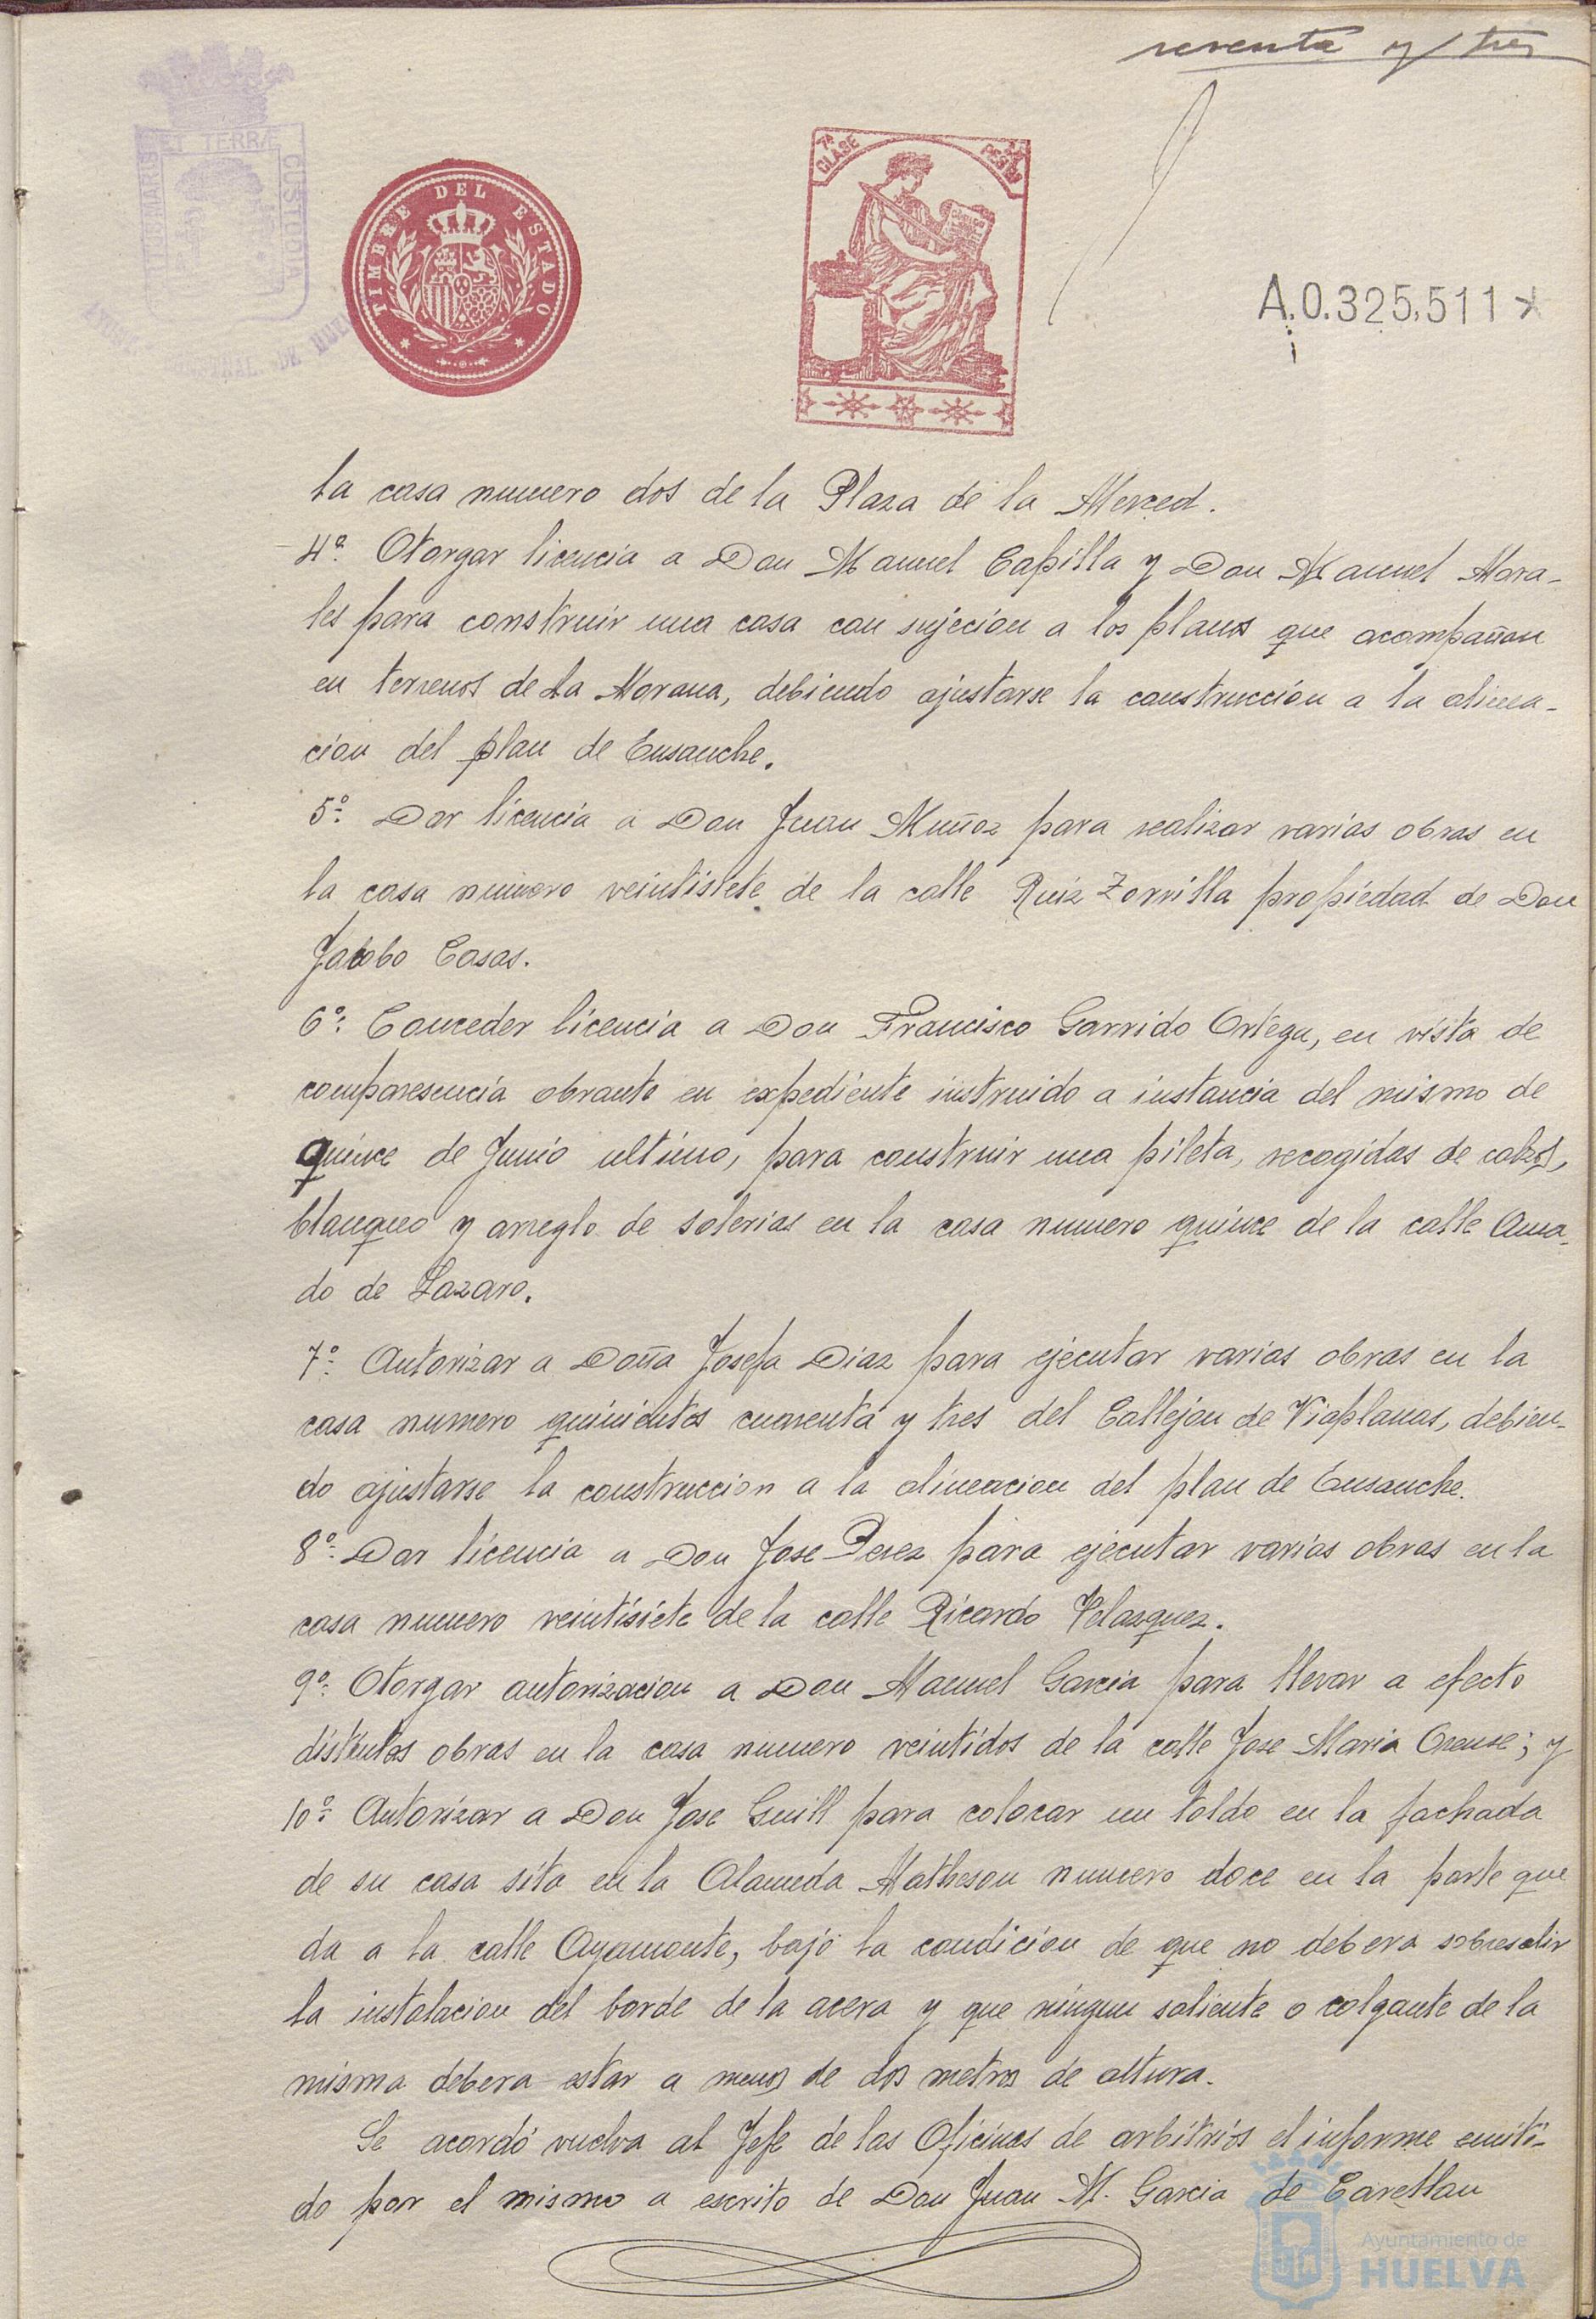 seventa y tres
PORTUS MARIS ET TERRÆ CUSTODIA
TIMBRE DEL ESTADO
7ª CLASE
A.0.325,511 *
la casa numero dos de la Plaza de la Merced.
4º Otorgar licencia a Don Manuel Capilla y Don Manuel Mora-
les para construir una casa con sujecion a los planos que acompañan
en terrenos de La Morana, debiendo ajustarse la construccion a la alinea-
cion del plan de Ensanche.
5º Dar licencia a Don Juan Muñoz para realizar varias obras en
la casa numero veintisiete de la calle Ruiz Zorrilla propiedad de Don
Jacobo Casas.
6º Conceder licencia a Don Francisco Garrido Ortega, en vista de
comparesencia obrante en expediente instruido a instancia del mismo de
quince de Junio ultimo, para construir una pileta, recogidas de cabos,
blanqueo y arreglo de solerias en la casa numero quince de la calle Ama-
do de Lazaro.
7º Autorizar a Doña Josefa Diaz para ejecutar varias obras en la
casa numero quinientos cuarenta y tres del Callejon de Viaplanas, debien-
do ajustarse la construccion a la alineacion del plan de Ensanche.
8º Dar licencia a Don Jose Perez para ejecutar varias obras en la
casa numero veintisiete de la calle Ricardo Velazquez.
9º Otorgar autorizacion a Don Manuel Garcia para llevar a efecto
distintas obras en la casa numero veintidos de la calle Jose Maria Orense; y
10º Autorizar a Don Jose Guill para colocar un toldo en la fachada
de su casa sita en la Alameda Matheson numero doce en la parte que
da a la calle Ayamonte, bajo la condicion de que no debera sobresalir
la instalacion del borde de la acera y que ningun saliente o colgante de la
misma debera estar a menos de dos metros de altura.
Se acordó vuelva al Jefe de las Oficinas de arbitrios el informe emiti-
do por el mismo a escrito de Don Juan M. Garcia de Carellan
Ayuntamiento de
HUELVA